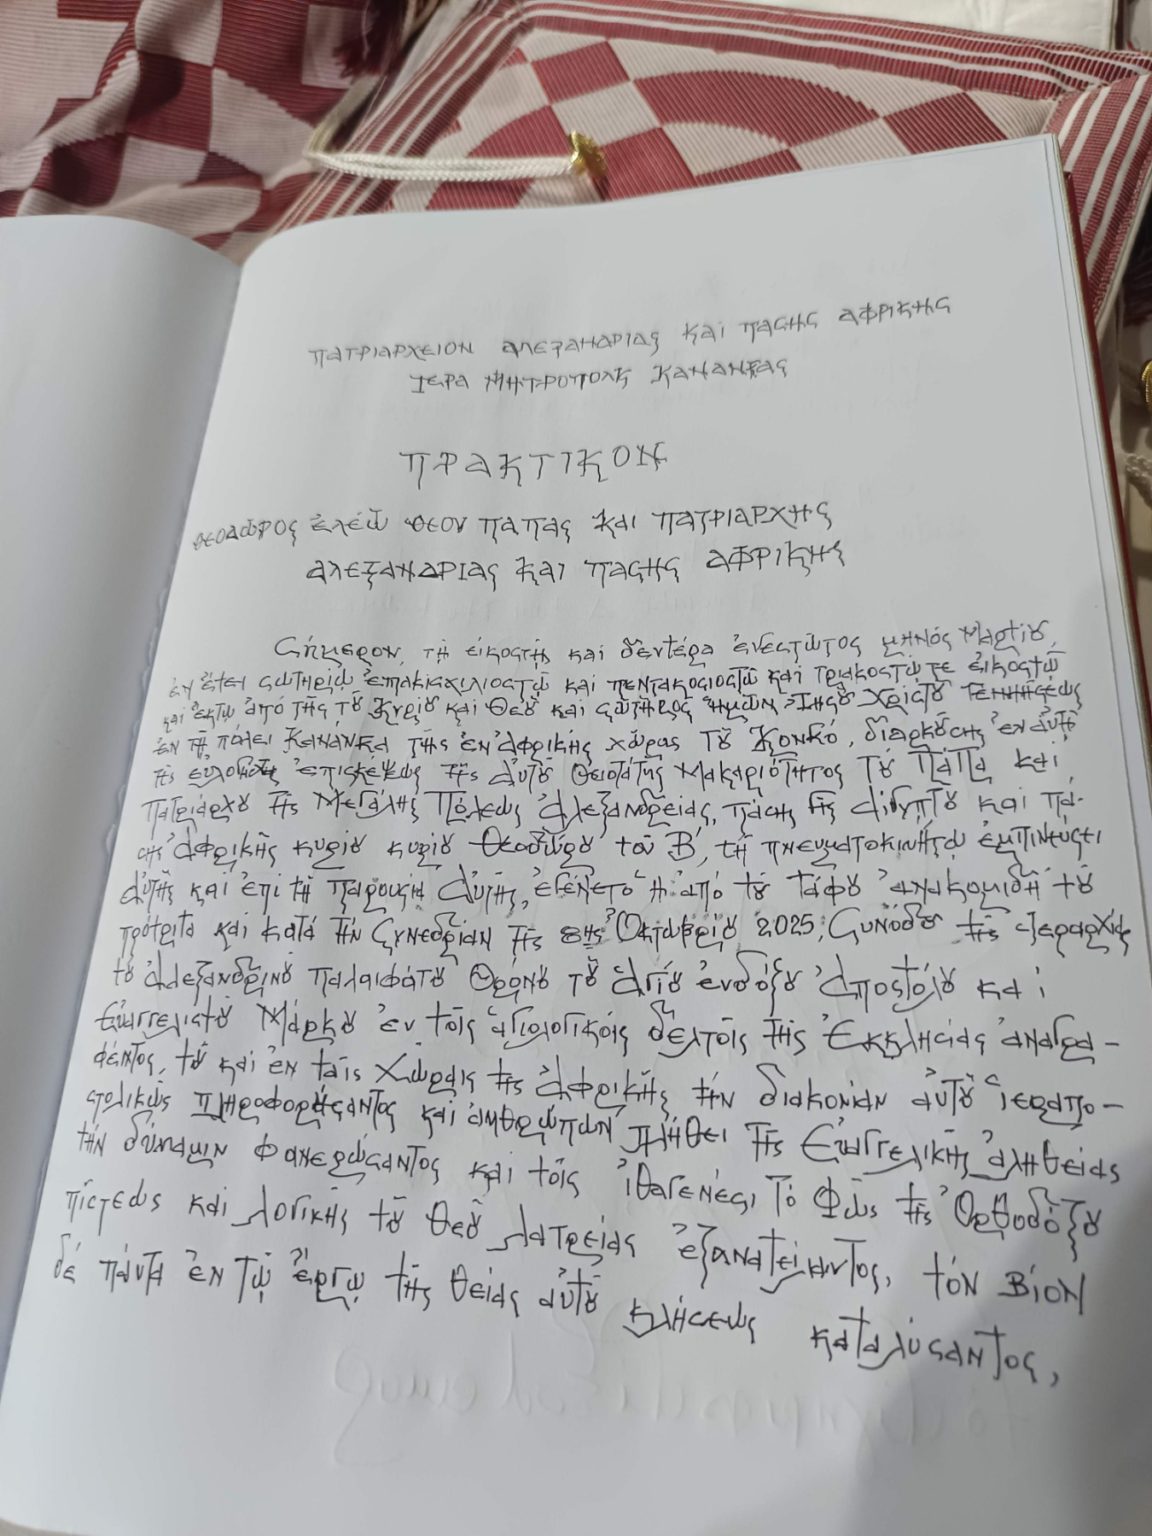 ΠΑΤΡΙΑΡΧΕΙΟΝ ΑΛΕΞΑΝΔΡΙΑς ΚΑΙ ΠΑσΗς ΑΦΡΙΚΗς
ΙΕΡΑ ΜΗΤΡΟΠΟΛΙς ΚΑΝΑΝΓΚΑς
ΠΡΑΚΤΙΚΟΝ
ΘΕΟΔΩΡΟς ἐλέῳ ΘΕΟΥ ΠΑΠΑς ΚΑΙ ΠΑΤΡΙΑΡΧΗς
ΑΛΕΞΑΝΔΡΙΑς ΚΑΙ ΠΑσΗς ΑΦΡΙΚΗς
Σήμερον, τῇ εἰκοστῇ καὶ δευτέρᾳ ἐνεστῶτος μηνός Μαρτίȣ,
ἐν ἔτει σωτηρίῳ ἑπτακισχιλιοστῷ καί πεντακοσιοστῷ καί τριακοστῷ τε εἰκοστῷ
καί ἕκτῳ ἀπό τῆς τȣ͂ Κυρίȣ καί Θεȣ͂ καί σωτῆρος ἡμῶν Ἰησȣ͂ Χριστȣ͂ Γεννήσεως
ἐν τῇ πόλει Κανάνκα τῆς ἐν Ἀφρικῇ χώρας τȣ͂ Κονκό, διαρκȣ́σης ἐν αὐτῇ
τῆς εὐλογητῆς ἐπισκέψεως τῆς Αὐτȣ͂ Θειοτάτης Μακαριότητος τȣ͂ Πάπα καί
Πατριάρχȣ τῆς Μεγάλης Πόλεως Ἀλεξανδρείας, πάσης γῆς Αἰγύπτȣ καί πά-
σης Ἀφρικῆς κυρίȣ κυρίȣ Θεοδώρȣ τοῦ Β΄, τῇ πνευματοκινήτῳ ἐμπνεύσει
Αὐτῆς καί ἐπί τῇ παρουσίᾳ Αὐτῆς, ἐγένετο ἡ ἀπό τȣ͂ τάφȣ ἀνακομιδή τȣ͂
πρότριτα καί κατά τήν Συνεδρίαν τῆς 8ης Ὀκτωβρίȣ 2025, Συνόδȣ τῆς Ἱεραρχίας
τȣ͂ Ἀλεξανδρινȣ͂ παλαιφάτȣ Θρόνȣ τȣ͂ Ἁγίȣ ἐνδόξȣ Ἀποστόλȣ καί
Εὐαγγελιστȣ͂ Μάρκȣ ἐν τοῖς ἁγιολογικοῖς δέλτοις τῆς Ἐκκλησίας ἀναγρα-
φέντος, τȣ͂ καί ἐν ταῖς Χώραις τῆς Ἀφρικῆς τήν διακονίαν αὐτȣ͂ ἱεραπο-
στολικῶς πληροφορήσαντος καί ἀνθρώπων πλήθει τῆς Εὐαγγελικῆς ἀληθείας
τήν δύναμιν φανερώσαντος καί τοῖς ἰθαγενέσι τό Φῶς τῆς Ὀρθοδόξȣ
πίστεως καί λογικῆς τȣ͂ Θεȣ͂ λατρείας ἐξανατείλαντος, τόν βίον
δέ πάντα ἐν τῷ ἔργῳ τῆς θείας αὐτȣ͂ κλήσεως καταλύσαντος,